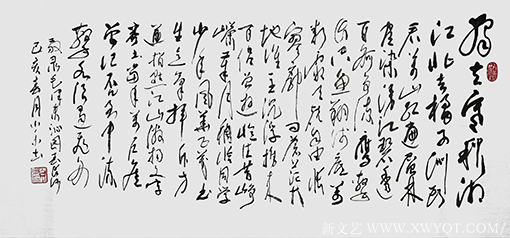 独立寒秋湘
江北去橘子洲头
看万山红遍层林
尽染漫江碧透
百舸争流鹰击
长空鱼翔浅底万
类霜天竞自由怅
寥廓问苍茫大
地谁主沉浮携来
百侣曾游忆往昔峥
嵘岁月稠恰同学
少年风华正茂书
生意气挥斥方
遒指点江山激扬文字
粪土当年万户侯
曾记否到中流
击水浪遏飞舟
敬录毛泽东沁园春长沙
己亥春月小小书
新文艺 WWW.XWYQT.COM/